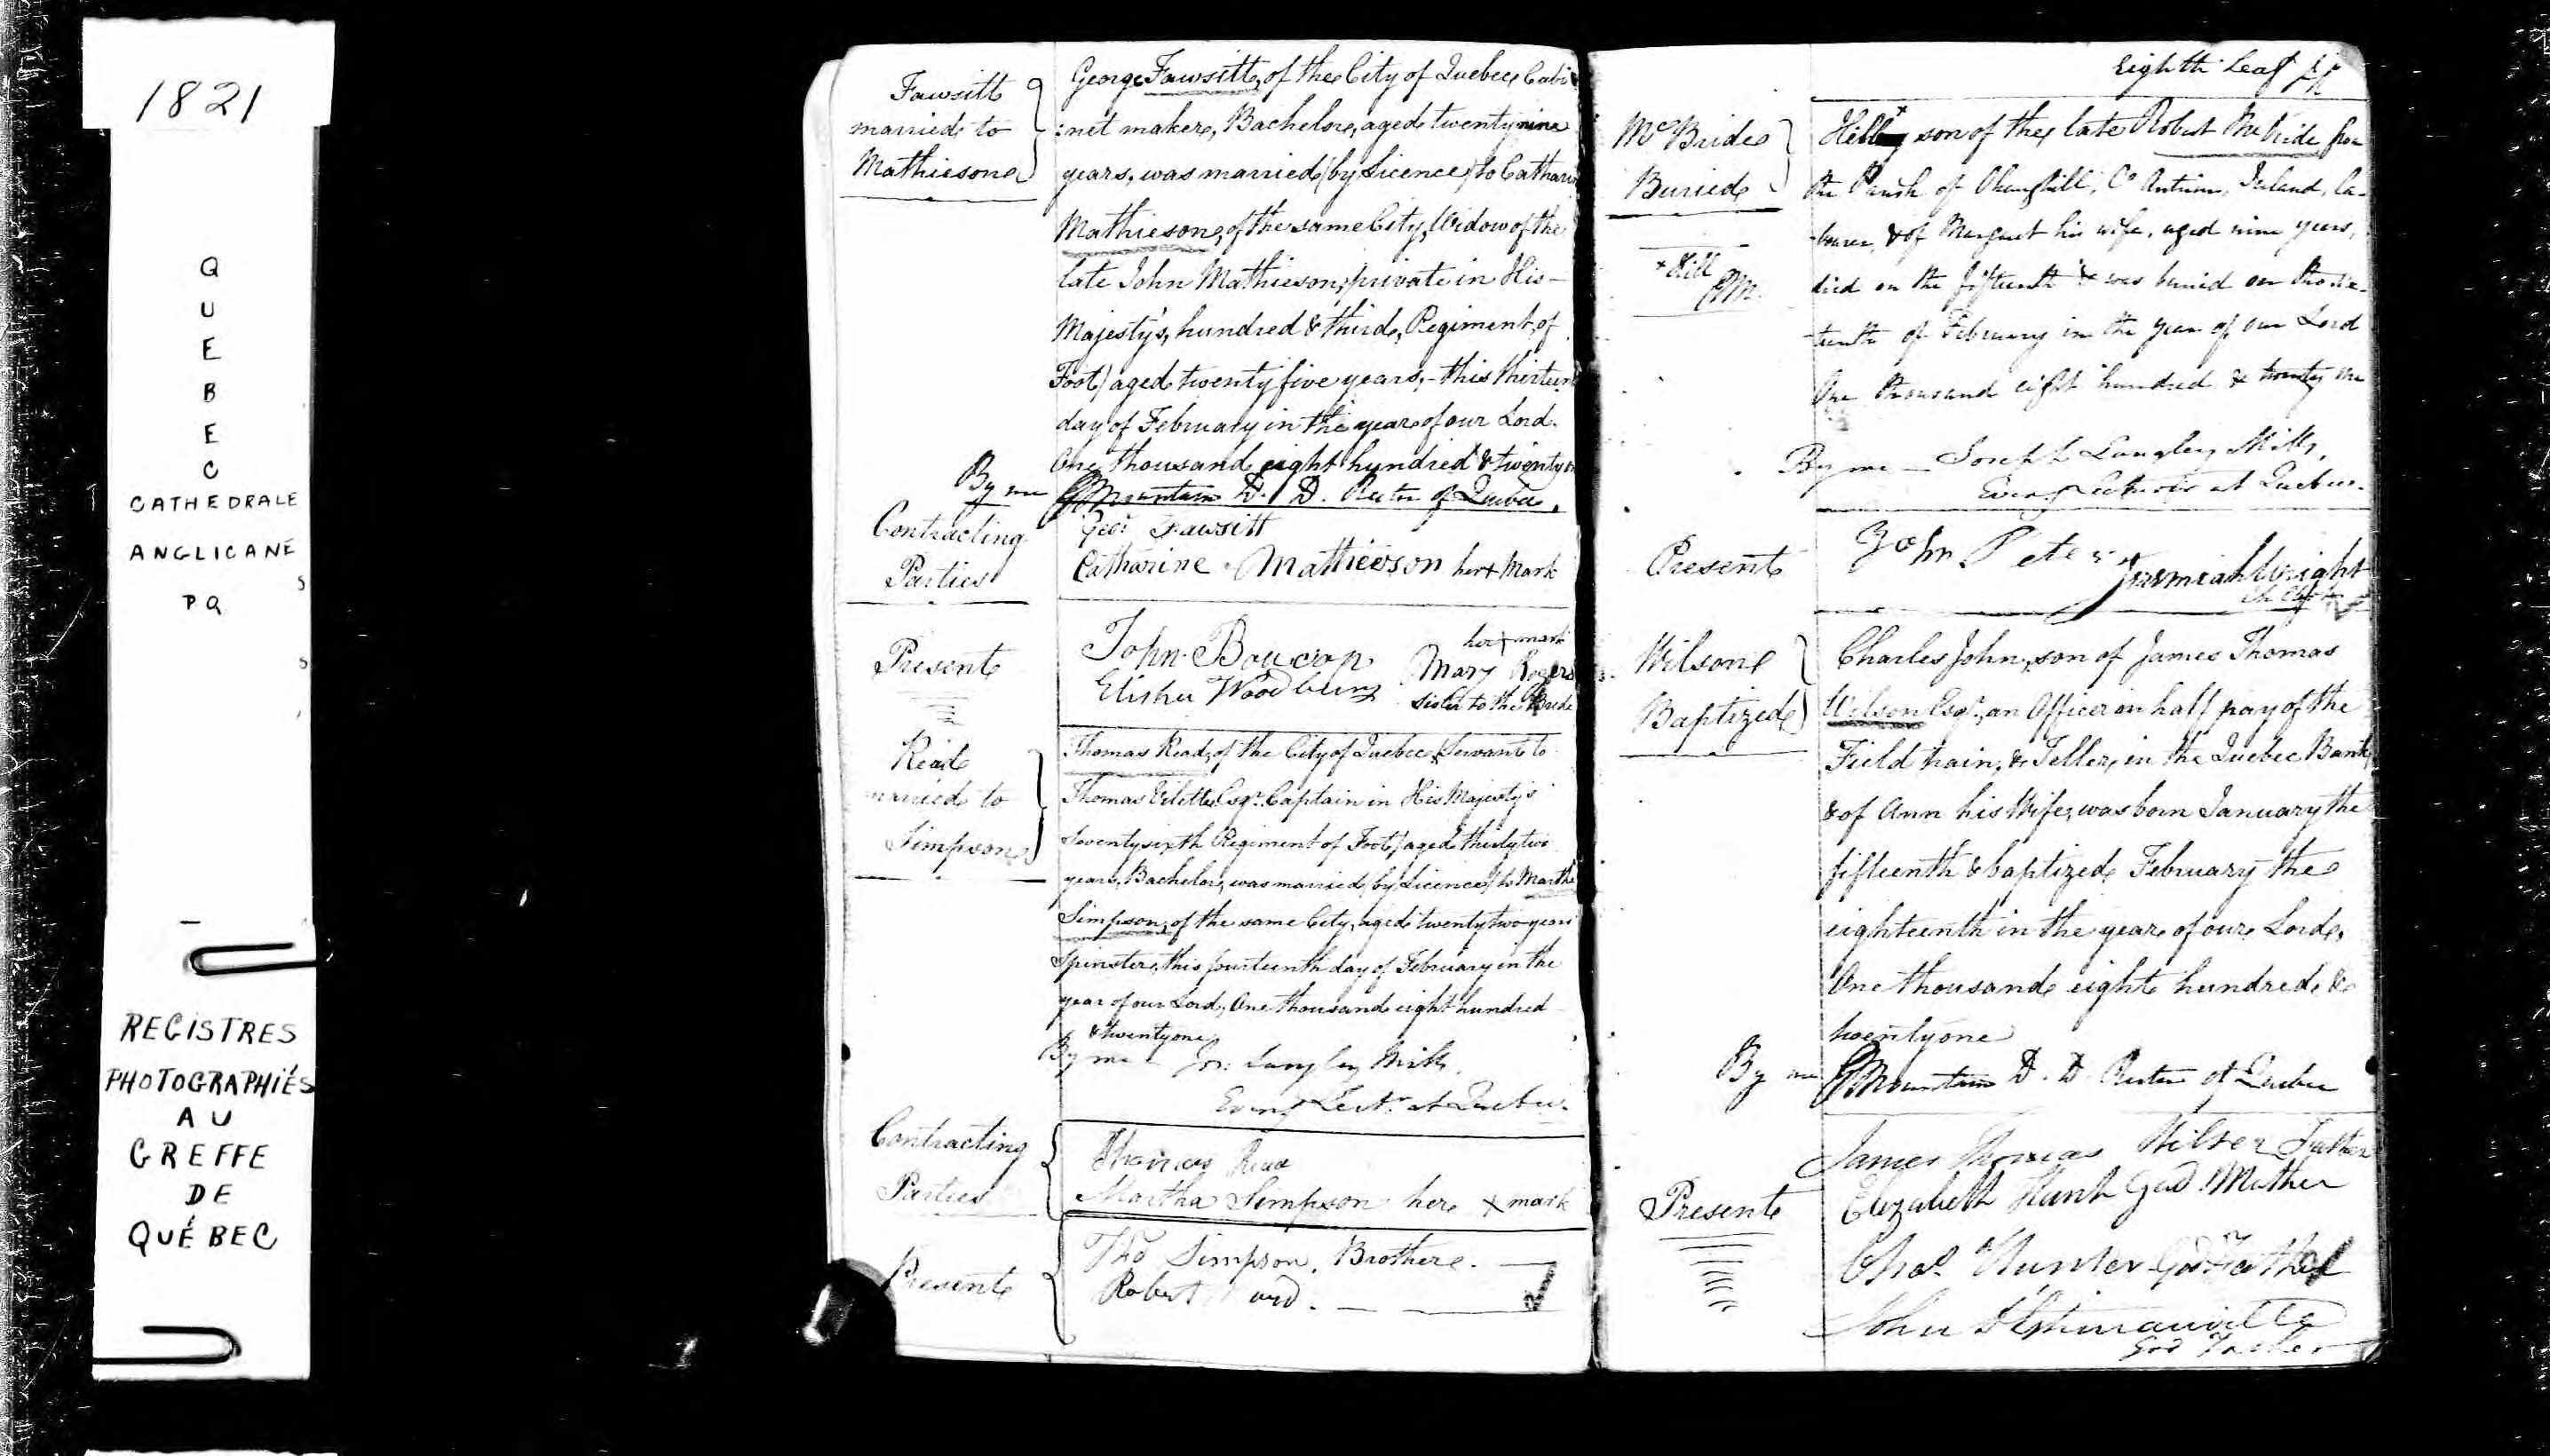 1821
QUEBEC
CATHEDRALE
ANGLICANE
PQ
REGISTRES
PHOTOGRAPHIÉS
AU
GREFFE
DE
QUÉBEC
Fawsitt
married to
Mathieson
George Fawsitt, of the City of Quebec, Cabi
:net maker, Bachelor, aged twenty nine
years, was married (by Licence) to Catharin
Mathieson, of the same City, Widow of the
late John Mathieson, private in His
Majesty's, hundred & third, Regiment, of
Foot, aged twenty five years, - this thirteen
day of February in the year of our Lord
One thousand eight hundred & twenty
By me GMountain D. D. Rector of Quebec.
Contracting
Parties
Geo: Fawsitt
Catharine Mathieson her x Mark
Present
John
Elisha Woodbury
her x mark
Mary Rogers
Sister to the Bride
Read
married to
Simpson
Thomas Read, of the City of Quebec (Servant to
Thomas Esqr. Captain in His Majesty's
Seventy sixth Regiment of Foot) aged thirty two
years, Bachelor, was married (by Licence) to Martha
Simpson, of the same City, aged twenty two years
Spinster, this fourteenth day of February in the
year of our Lord, One thousand eight hundred
& twenty one
By me Jos: Langley Mills.
Eveng. Lectr. at Quebec.
Contracting
Parties
Thomas Read
Martha Simpson her x mark
Present
Tho Simpson, Brother.
Robert
Eighth Leaf
McBride
Buried
x Hill
son of the late Robert McBride from
the Parish of Co Antrim, Ireland, la-
-bourer, & of Margaret his wife, aged nine years,
died on the fifteenth & was buried on the six-
-teenth of February in the year of our Lord
One thousand eight hundred & twenty one
By me - Joseph Langley Mills,
Eveng Lecturer at Quebec.
Present
John Peters
Jeremiah Wright
Wilson
Baptized
Charles John, son of James Thomas
Wilson Esqr., an Officer on half pay of the
Field train, & Teller, in the Quebec Bank,
& of Ann his Wife, was born January the
fifteenth & baptized February the
eighteenth in the year of our Lord,
One thousand eight hundred &
twenty one
By me GMountain D. D. Rector of Quebec
Present
James Thomas Wilson Father
Elizabeth Hunt God Mother
Chas. Hunter God Father
John
God Father